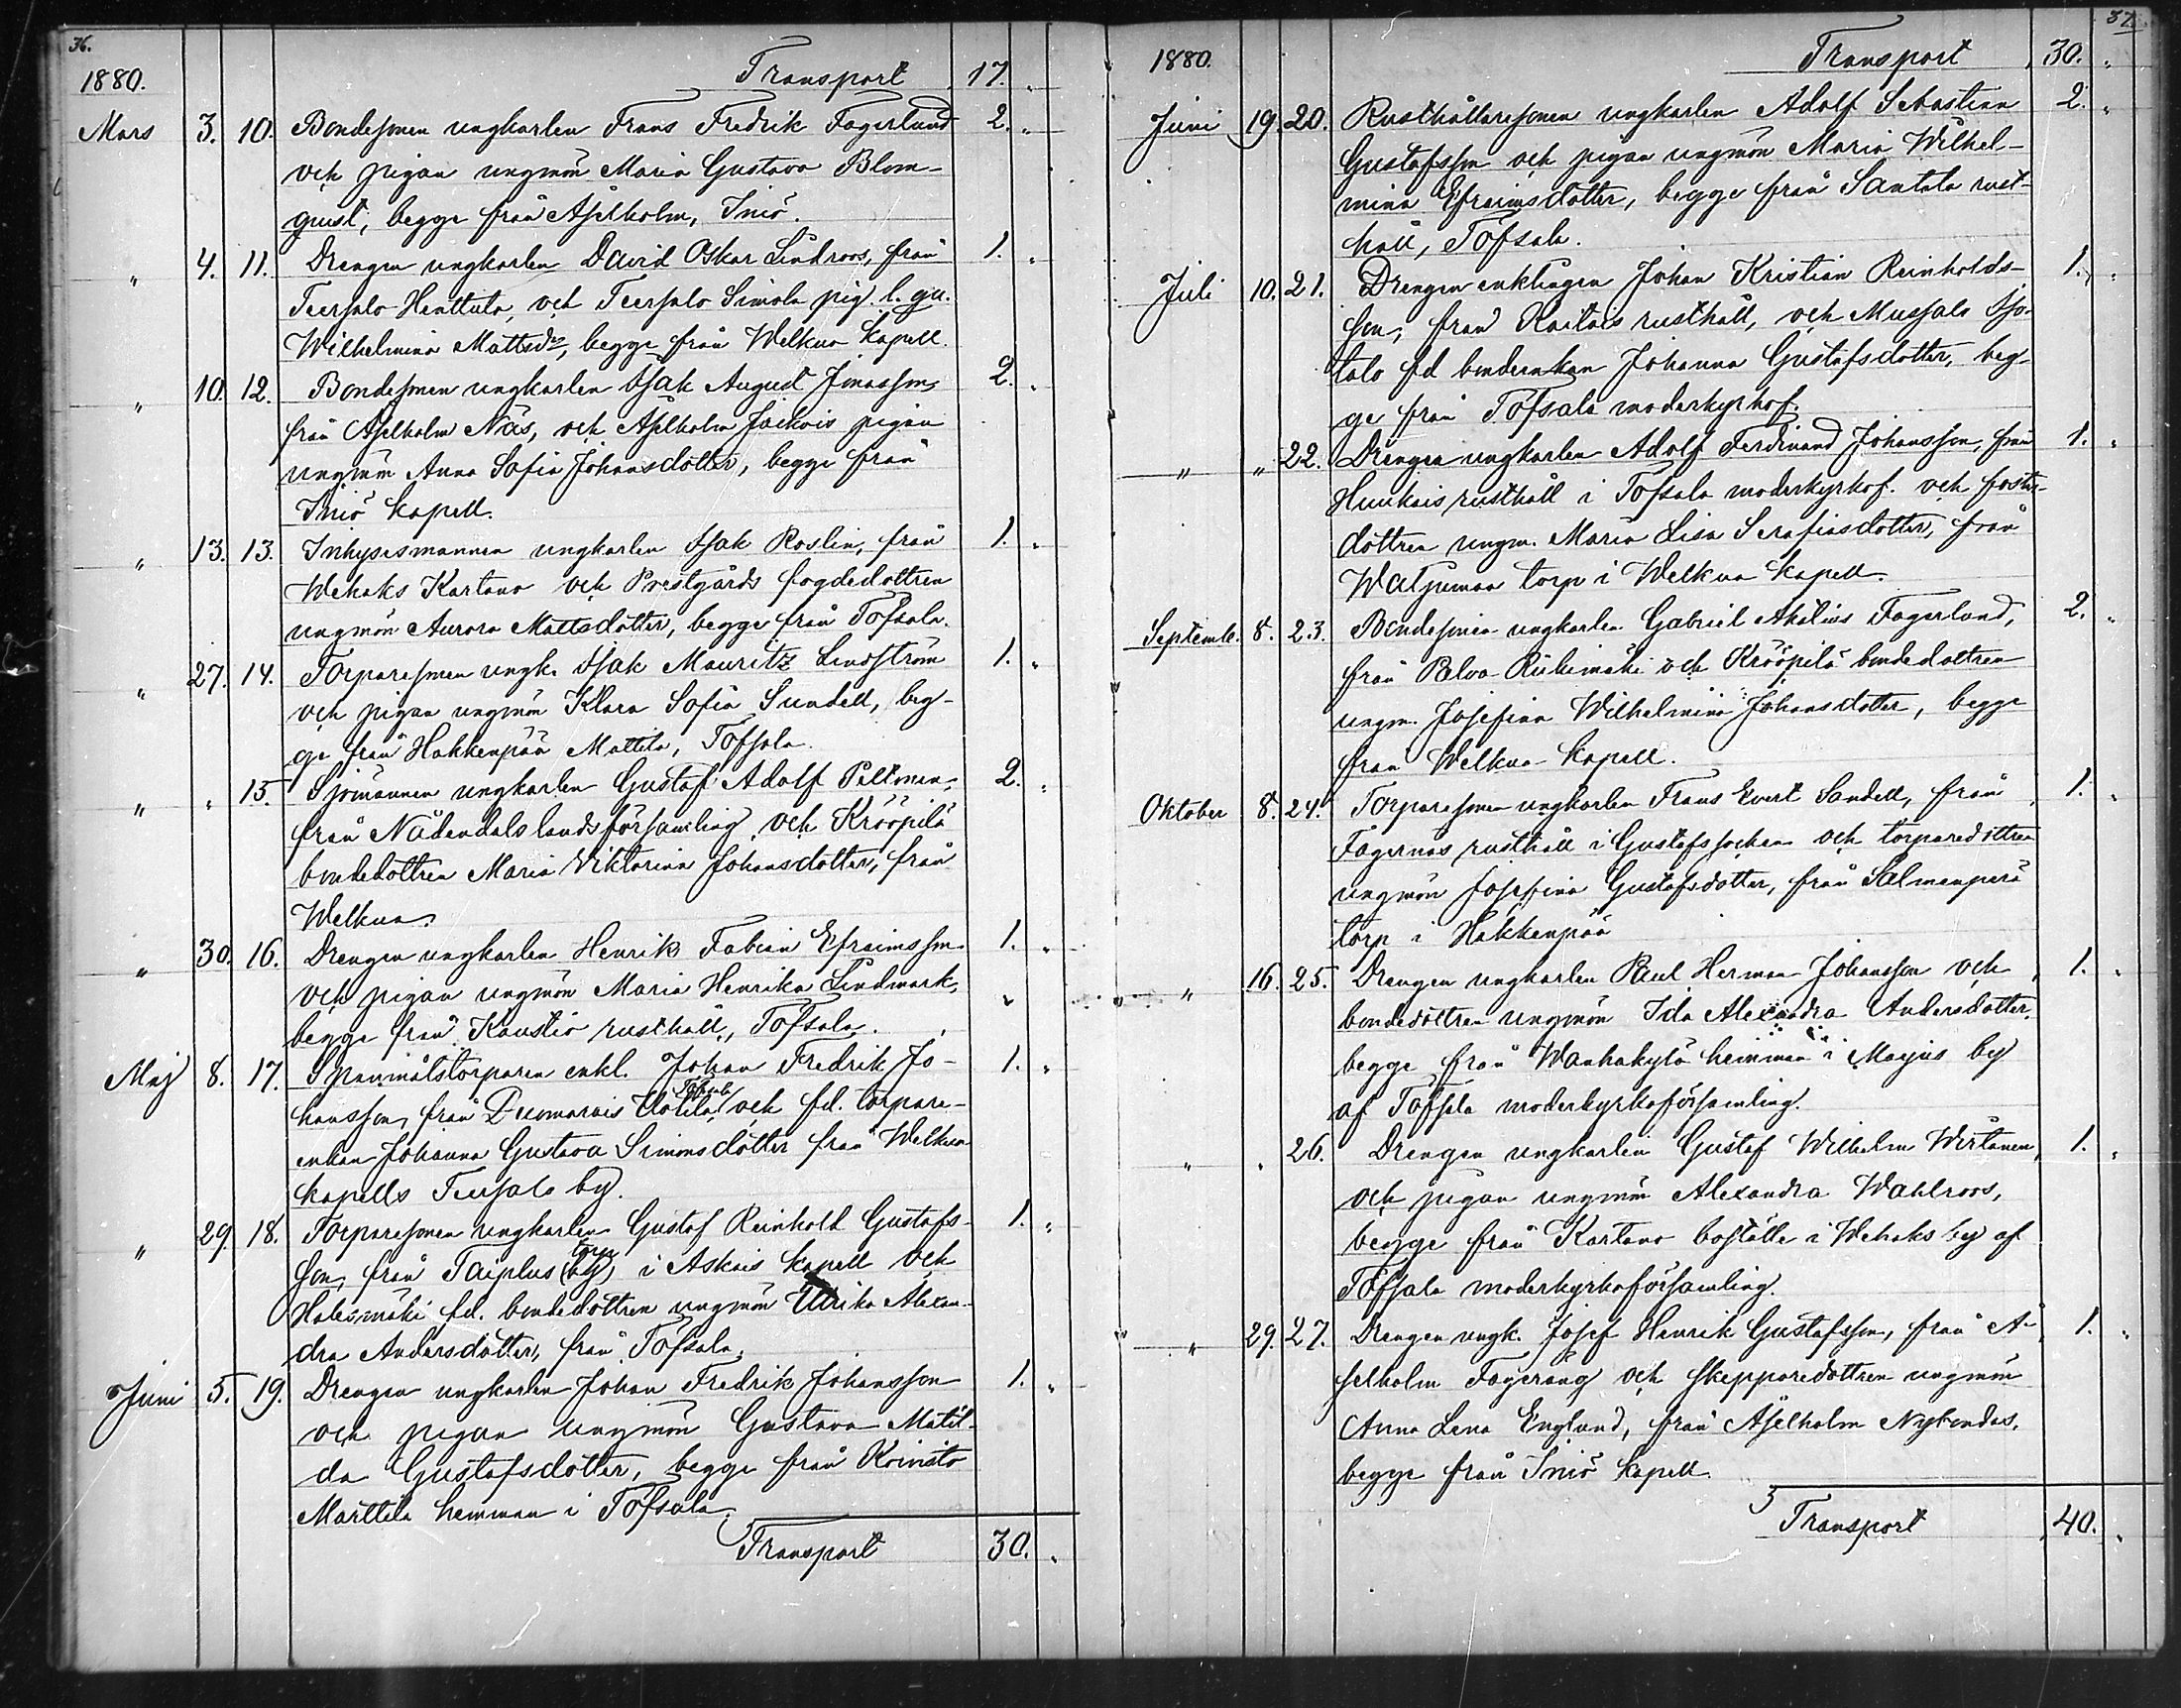 36.
1880. Transport 17. "
Mars 3. 10. Bondesonen ungkarlen Frans Fredrik Fagerlund 2. "
och pigan ungmön Maria Gustava Blom-
qvist, begge från Åselholm, Iniö.
" 4. 11. Drengen ungkarlen David Oskar Lindroos, från 1. "
Teersalo Henttula, och Teersalo Simola pig. l. qu.
Wilhelmina Mattsdr, begge från Welkua kapell.
" 10. 12. Bondesonen ungkarlen Isak August Jonasson, 2. "
från Åselholm Näs, och Åselholm Jackois pigan
ungmön Anna Sofia Johansdotter, begge från
Iniö kapell.
" 13. 13. Inhysesmannen ungkarlen Isak Roslin, från 1. "
Wehaks Kartano och Prestgårds fogdedottren
ungmön Aurora Mattsdotter, begge från Töfsala.
" 27. 14. Torparesonen ungk. Isak Mauritz Lindström 1. "
och pigan ungmön Klara Sofia Sundell, beg-
ge från Hakkenpää Mattila, Töfsala.
" " 15. Sjömannen ungkarlen Gustaf Adolf Paltman, 2. "
från Nådendals landsförsamling, och Krööpilä
bondedottren Maria Viktorina Johansdotter, från
Welkua.
" 30. 16. Drengen ungkarlen Henrik Fabian Efraimsson 1. "
och pigan ungmön Maria Henrika Lindmark,
begge från Kaustio rusthåll, Töfsala.
Maj 8. 17. Spanmålstorparen enkl. Johan Fredrik Jo- 1. "
Töfsala
hansson, från Duomarais Uotila, och fd. torpare-
enkan Johanna Gustava Simonsdotter från Welkua
kapells Teersalo by.
" 29. 18. Torparesonen ungkarlen Gustaf Reinhold Gustafs- 1. "
torp
son, från Taiplus (by) i Askais kapell och
Holesmäki fd. bondedottren ungmön Ulrika Alexan-
dra Andersdotter, från Töfsala.
Juni 5. 19. Drengen ungkarlen Johan Fredrik Johansson 1. "
och pigan ungmön Gustava Matil-
da Gustafsdotter, begge från Koivisto
Marttila hemman i Töfsala.
Transport 30. "
37.
1880. Transport 30. "
Juni 19. 20. Rusthållaresonen ungkarlen Adolf Sebastian 2. "
Gustafsson och pigan ungmön Maria Wilhel-
mina Efraimsdotter, begge från Santala rust-
håll, Töfsala.
Juli 10. 21. Drengen enklingen Johan Kristian Reinholds- 1. "
son, från Kaitais rusthåll, och Mussalo Iso-
talo fd bondeenkan Johanna Gustafsdotter, beg-
ge från Töfsala moderkyrkof.
" " 22. Drengen ungkarlen Adolf Ferdinand Johansson, från 1. "
Hunkais rusthåll i Töfsala moderkyrkof. och foster-
dottren ungm. Maria Lisa Serafiasdotter, från
Watjumaa torp i Welkua kapell.
Septemb. 8. 23. Bondesonen ungkarlen Gabriel Akilius Fagerlund, 2. "
från Palva Riihimäki och Krööpilä bondedottren
ungm. Josefina Wilhelmina Johansdotter, begge
från Welkua kapell.
Oktober 8. 24. Torparesonen ungkarlen Frans Evert Sandell, från 1. "
Fagernäs rusthåll i Gustafs socken och torparedottren
ungmön Josefina Gustafsdotter, från Salmenperä
torp i Hakkenpää
" 16. 25. Drengen ungkarlen Paul Herman Johansson och 1. "
bondedottren ungmön Ida Alexandra Andersdotter,
begge från Wanhakylä hemman i Marjus by
af Töfsala moderkyrkoförsamling.
" " 26. Drengen ungkarlen Gustaf Wilhelm Wirtanen, 1. "
och pigan ungmön Alexandra Wahlroos,
begge från Kartano boställe i Wehaks by af
Töfsala moderkyrkoförsamling.
" 29. 27. Drengen ungk. Josef Henrik Gustafsson, från Å- 1. "
selholm Fageräng och skepparedottren ungmön
Anna Lena Englund, från Åselholm Nybondas,
begge från Iniö kapell.
Transport 40. "